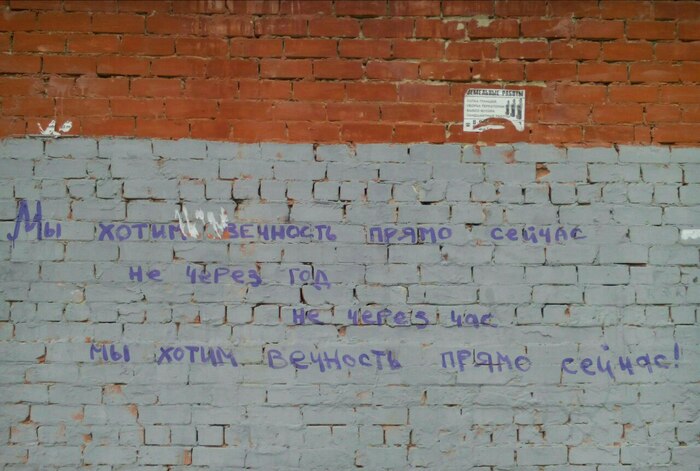 ЗЕМЕЛЬНЫЕ РАБОТЫ
Мы хотим вечность прямо сейчас
не через год
не через час
мы хотим вечность прямо сейчас!